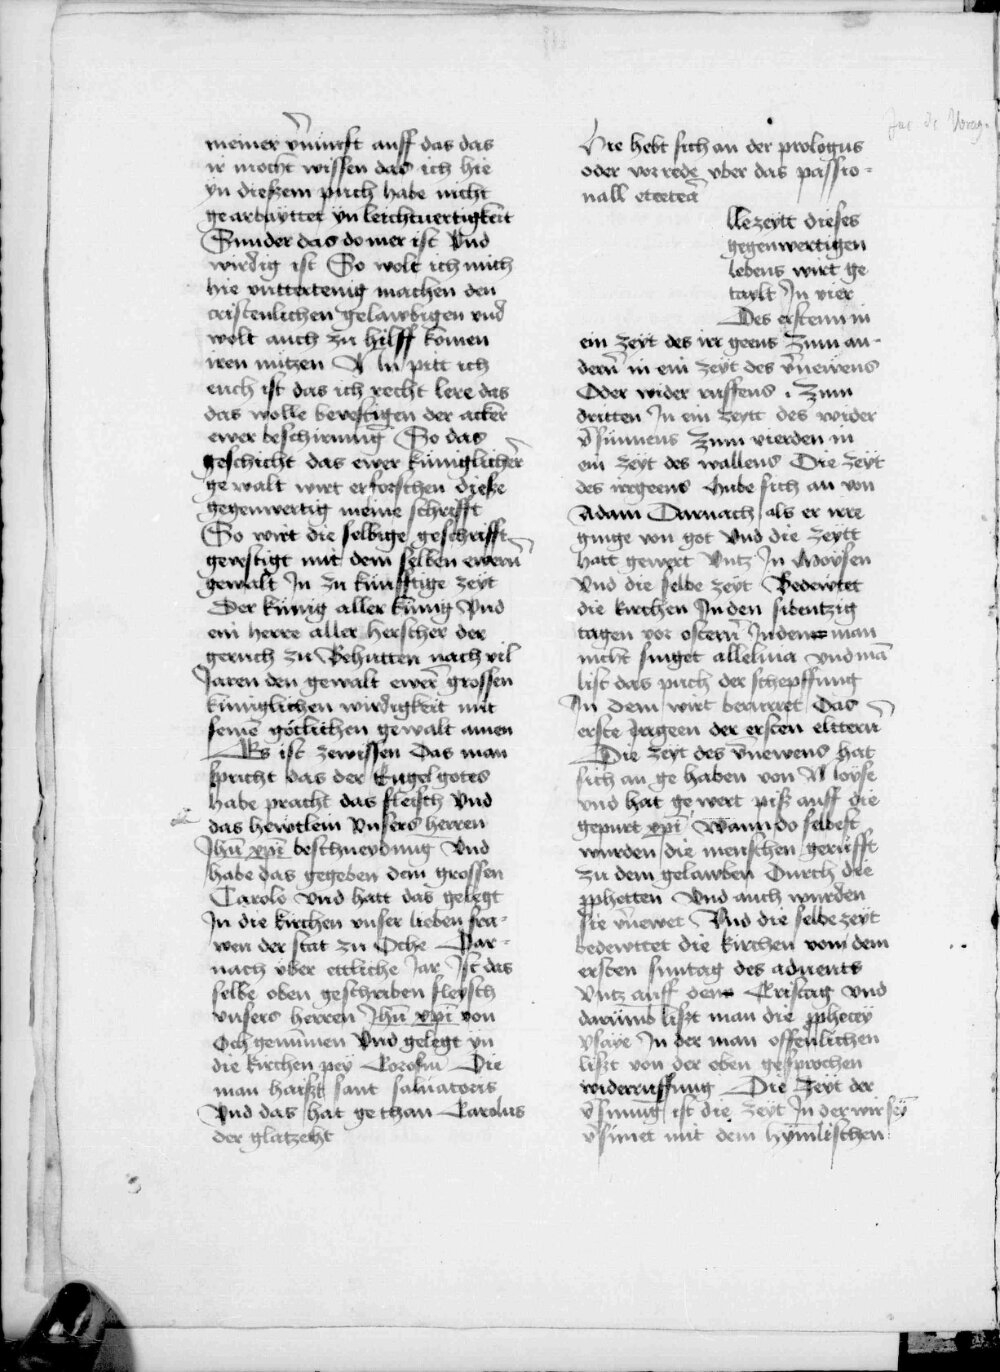 meiner v̄nunfft auff das das
ir mocht wissen das ich hie
yn dießem puch habe nicht
gearbayttet yn leichtuertigkeit
Sunder das do mer ist Vnd
wirdig ist So wolt ich mich
hie vnttertenig machen den
cristenlichen gelawbigen vnd
wolt auch zu hilff komen
iren nutzen Nu pitt ich
euch ist das ich recht lere das
das wolle bevestigen der acker
ewer beschirmung So das
geschicht das ewer kuniglicher
gewalt wirt erforschen dieße
gegenwertig meine schrifft
So wirt die selbige geschrifft
gevestigt mit dem selben ewern̄
gewalt In zu kunfftige zeyt
Der kunig aller kunig Vnd
ein herre aller herscher der
geruch zu Behutten nach vil
Jaren den gewalt ewer grossen
kuniglichen wirdigkeit mit
seinē gotlichen gewalt amen
Es ist zewissen Das man
spricht das der Engel gotes
habe pracht das fleisch Vnd
das hewtlein Vnsers herren
Jhū xpī beschneydung Vnd
habe das gegeben dem grossen
Carolo Vnd hatt das gelegt
In die kirchen vnser lieben fra-
wen der stat zu Oche Dar-
nach vber ettliche Jar Ist das
selbe oben geschriben fleysch
vnsers herren Jhū xpī von
Och genummen Vnd gelegt yn
die kirchen pey Die
man haißt sant saluatoris
Vnd das hat gethan Carolus
der glatzeht
Jac de Vorag.
Hie hebt sich an der prologus
oder vorrede vber das passio-
nall etcetea
llezeytt dieses
gegenwertigen
lebens wirt ge
taylt In vier
Des ersten in
ein zeyt des irr geens Zum an-
dern̄ in ein zeyt des v̄newens
Oder wider ruffens . Zum
dritten In ein zeytt des wider
v̄sunnens Zum vierden in
ein zeyt des wallens Die zeyt
des irrgeens hube sich an von
Adam Darnach als er irre
ginge von got Vnd die zeytt
hatt gewert Vntz In Moysen
Vnd die selbe zeyt Bedewtet
die kirchen In den sibentzig
tagen vor ostern̄ In dem man
nicht singet alleluia vnd mā
list das puch der schepffung
In dem wirt berurret Das
erste Irrgeen der ersten elttern̄
Die zeyt des v̄newens hat
sich an gehaben von Moyse
vnd hat gewert piß auff die
gepurt xpī Wann do selbest
wurden die menschen gerufft
zu dem gelawben Durch die
pphetten Vnd auch wurden
sie v̄newet Vnd die selbe zeyt
bedewttet die kirchen vom dem
ersten suntag des aduents
Vntz auff dem Cristag Vnd
darumb lißt man die pphecey
ysaye In der man offenlichen
lißt von der oben gesprochen
widerruffung Die Zeyt der
v̄sunung ist die zeyt In der wir sey
v̄sunet mit dem hymlischen